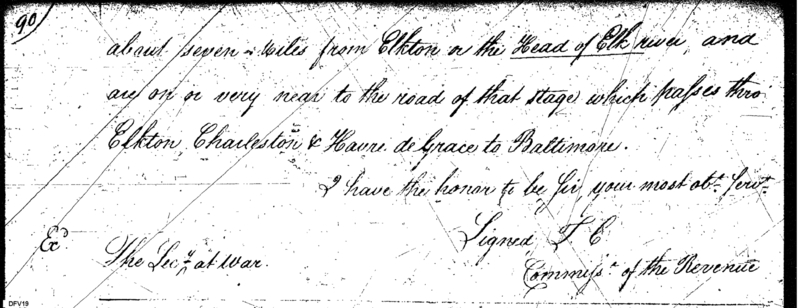 90
about seven miles from Elkton or the Head of Elk river, and
are on or very near to the road of that stage which passes thro'
Elkton, Charleston & Havre de Grace to Baltimore.
I have the honor to be Sir, your most obt. Servt.
Signed T C
Exd
The Secy. at War.
Commissr. of the Revenue
DFV19